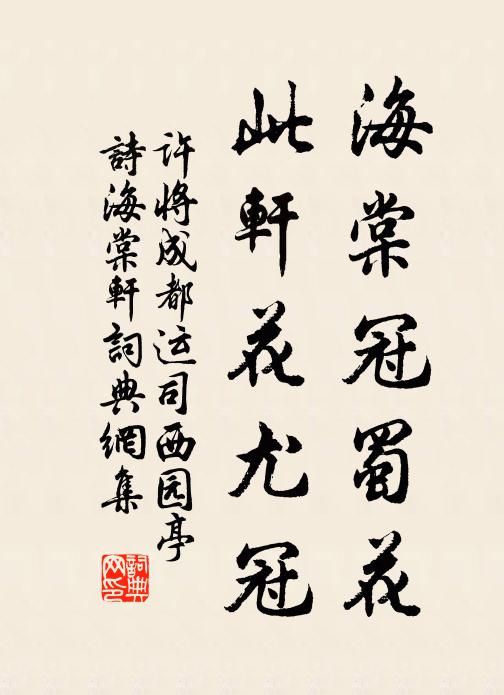 海棠冠蜀花
此軒花尤冠
许将成都运司西园亭
詩海棠軒詞典網集
詞典
网印